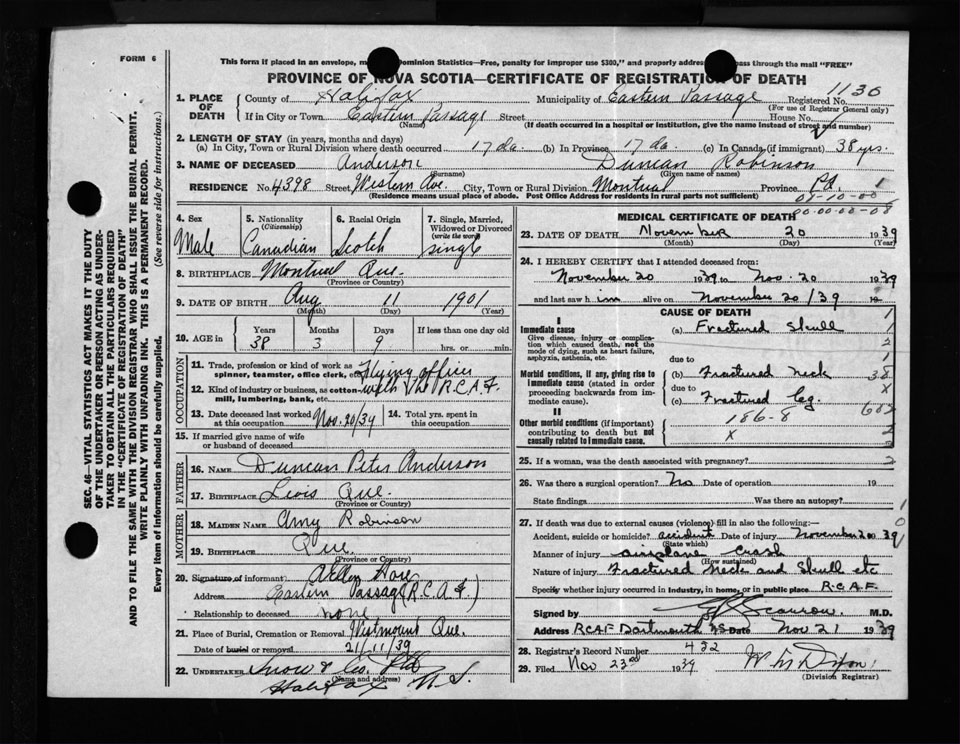 FORM 6
This form if placed in an envelope, Dominion Statistics—Free, penalty for improper use $300," and properly pass through the mail "FREE"
PROVINCE OF NOVA SCOTIA—CERTIFICATE OF REGISTRATION OF DEATH
1130
1. PLACE OF DEATH
County of Halifax Municipality of Eastern Passage Registered No.
(For use of Registrar General only)
If in City or Town Eastern Passage Street House No.
(Name) (If death occurred in a hospital or institution, give the name instead of street and number)
2. LENGTH OF STAY (in years, months and days)
(a) In City, Town or Rural Division where death occurred 17 da. (b) In Province 17 da. (c) In Canada (if immigrant) 38 yrs.
3. NAME OF DECEASED Anderson Duncan Robinson
(Surname) (Given name or names)
RESIDENCE No. 4398 Street Western Ave. City, Town or Rural Division Montreal Province
(Residence means usual place of abode. Post Office Address for residents in rural parts not sufficient)
SEC. 46—VITAL STATISTICS ACT MAKES IT THE DUTY
OF THE UNDERTAKER OR PERSON ACTING AS UNDER-
TAKER TO OBTAIN ALL THE PARTICULARS REQUIRED
IN THE "CERTIFICATE OF REGISTRATION OF DEATH"
AND TO FILE THE SAME WITH THE DIVISION REGISTRAR WHO SHALL ISSUE THE BURIAL PERMIT.
WRITE PLAINLY WITH UNFADING INK. THIS IS A PERMANENT RECORD.
Every item of information should be carefully supplied. (See reverse side for instructions.)
4. Sex 5. Nationality 6. Racial Origin 7. Single, Married,
(Citizenship) Widowed or Divorced
(write the word)
Male Canadian Scotch single
8. BIRTHPLACE Montreal Que.
(Province or Country)
9. DATE OF BIRTH Aug 11 1901
(Month) (Day) (Year)
10. AGE in Years Months Days If less than one day old
38 3 9 hrs. or min.
OCCUPATION
11. Trade, profession or kind of work as Flying officer
spinner, teamster, office clerk, etc.
12. Kind of industry or business, as cotton with the R.C.A.F.
mill, lumbering, bank, etc.
13. Date deceased last worked at this occupation Nov. 20/39
14. Total yrs. spent in this occupation
15. If married give name of wife
or husband of deceased
FATHER
16. NAME Duncan Peter Anderson
17. BIRTHPLACE Levis Que.
(Province or Country)
MOTHER
18. MAIDEN NAME Amy Robinson
19. BIRTHPLACE Que.
(Province or Country)
20. Signature of informant
Address Eastern Passage (R.C.A.F.)
Relationship to deceased none
21. Place of Burial, Cremation or Removal Westmount Que.
Date of burial or removal 21/11/39
22. UNDERTAKER Snow & Co. Ltd
(Name and address)
Halifax N.S.
MEDICAL CERTIFICATE OF DEATH
23. DATE OF DEATH November 20 1939
(Month) (Day) (Year)
24. I HEREBY CERTIFY that I attended deceased from:
November 20 1939 to Nov. 20 1939
and last saw him alive on November 20/39 19
CAUSE OF DEATH
I
Immediate cause (a) Fractured Skull
Give disease, injury or complica-
tion which caused death, not the
mode of dying, such as heart failure,
asphyxia, asthenia, etc.
due to
Morbid conditions, if any, giving rise to
immediate cause (stated in order
proceeding backwards from im-
mediate cause).
(b) Fractured Neck
due to
(c) Fractured leg
II
Other morbid conditions (if important)
contributing to death but not
causally related to immediate cause.
186-8
X
25. If a woman, was the death associated with pregnancy?
26. Was there a surgical operation? No Date of operation 19
State findings Was there an autopsy?
27. If death was due to external causes (violence) fill in also the following:
Accident, suicide or homicide? accident Date of injury November 20 1939
(State which)
Manner of injury airplane crash
(How sustained)
Nature of injury Fractured Neck and Skull etc
Specify whether injury occurred in industry, in home, or in public place R.C.A.F.
Signed by M.D.
Address RCAF Dartmouth NS Date Nov 21 1939
28. Registrar's Record Number 432
29. Filed Nov 23rd 1939
(Division Registrar)